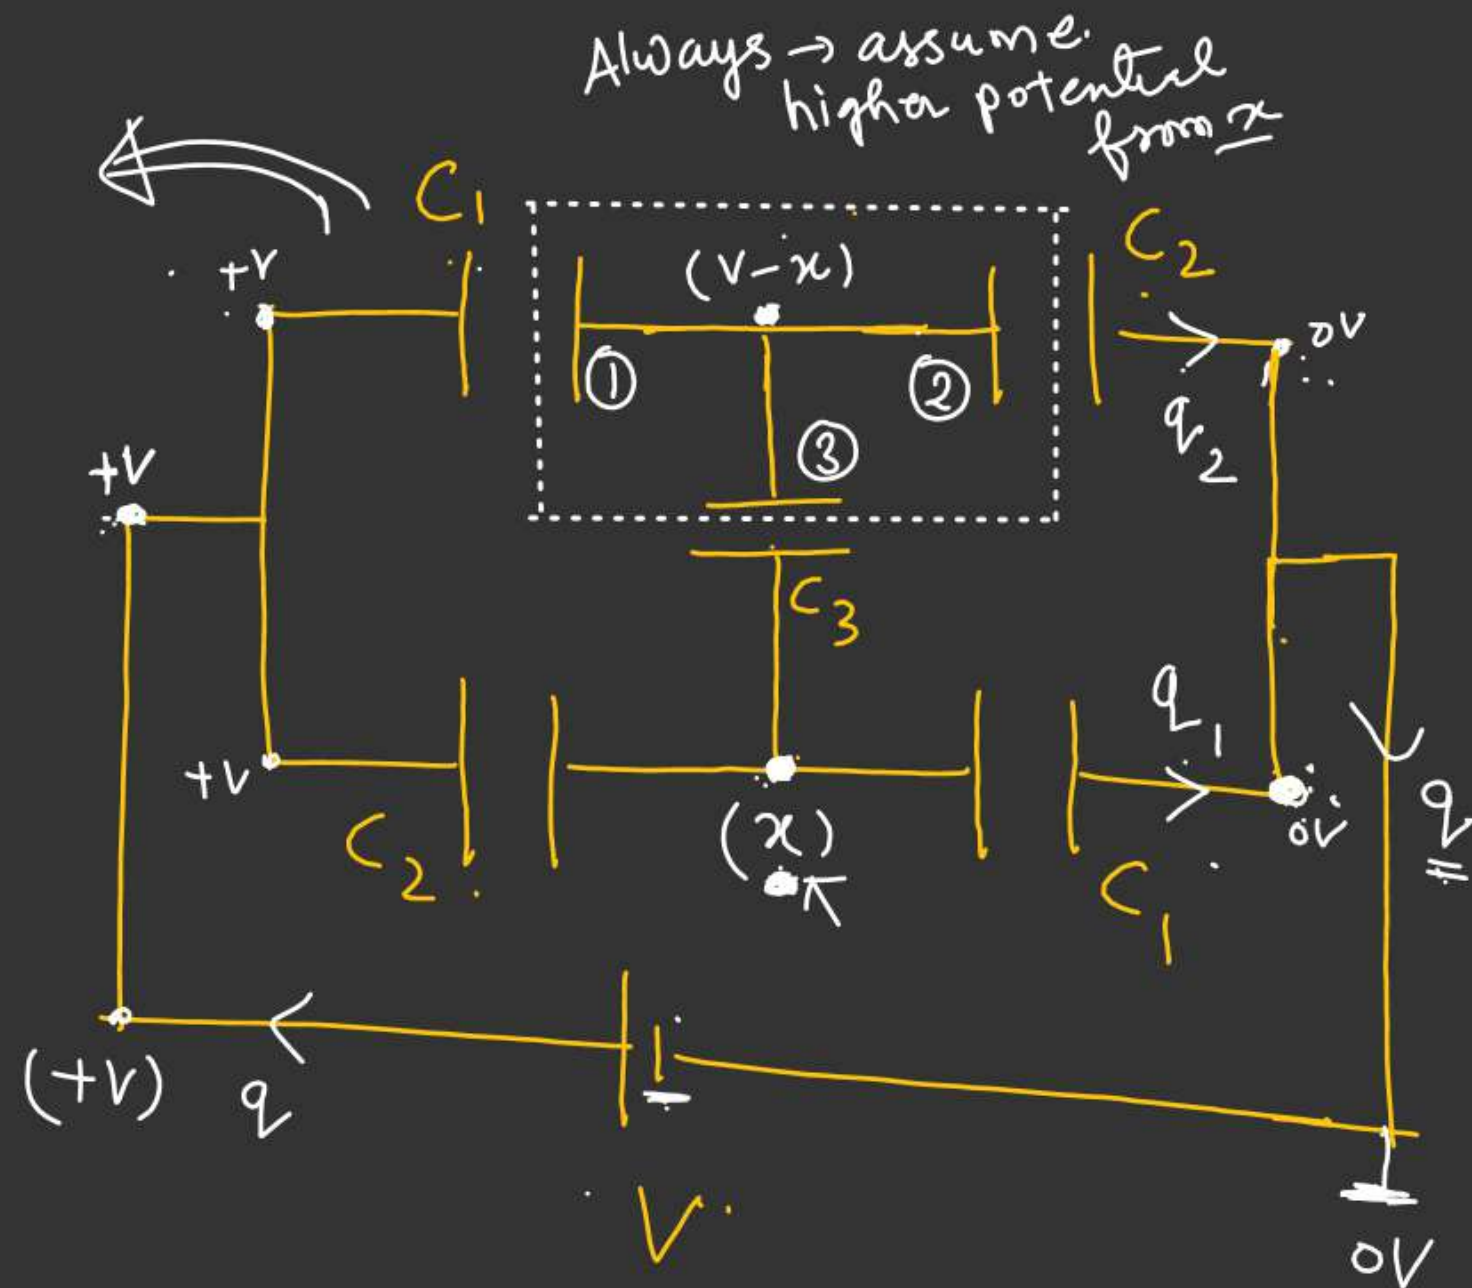 Always → assume.
higher potential
from x
C1
C2
+V
(V-x)
0V
①
②
③
q2
+V
C3
q1
+V
(x)
0V
q
C2
C1
(+V)
q
V
0V